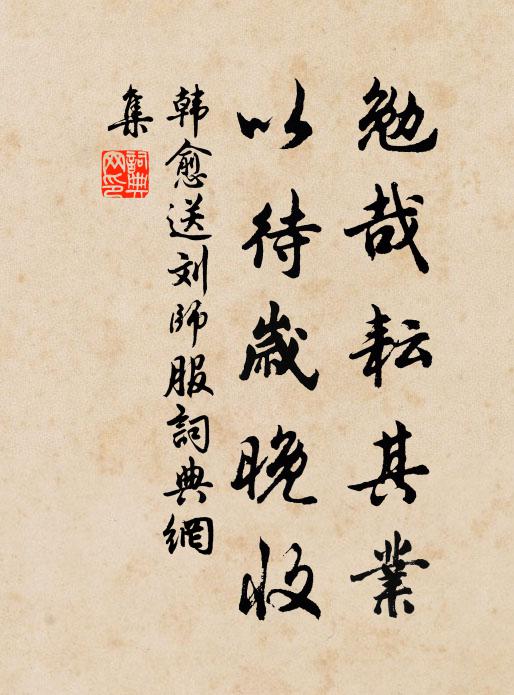 勉哉耘其業
以待歲晚收
韓愈送刘師服詞典網
集
詞典網印